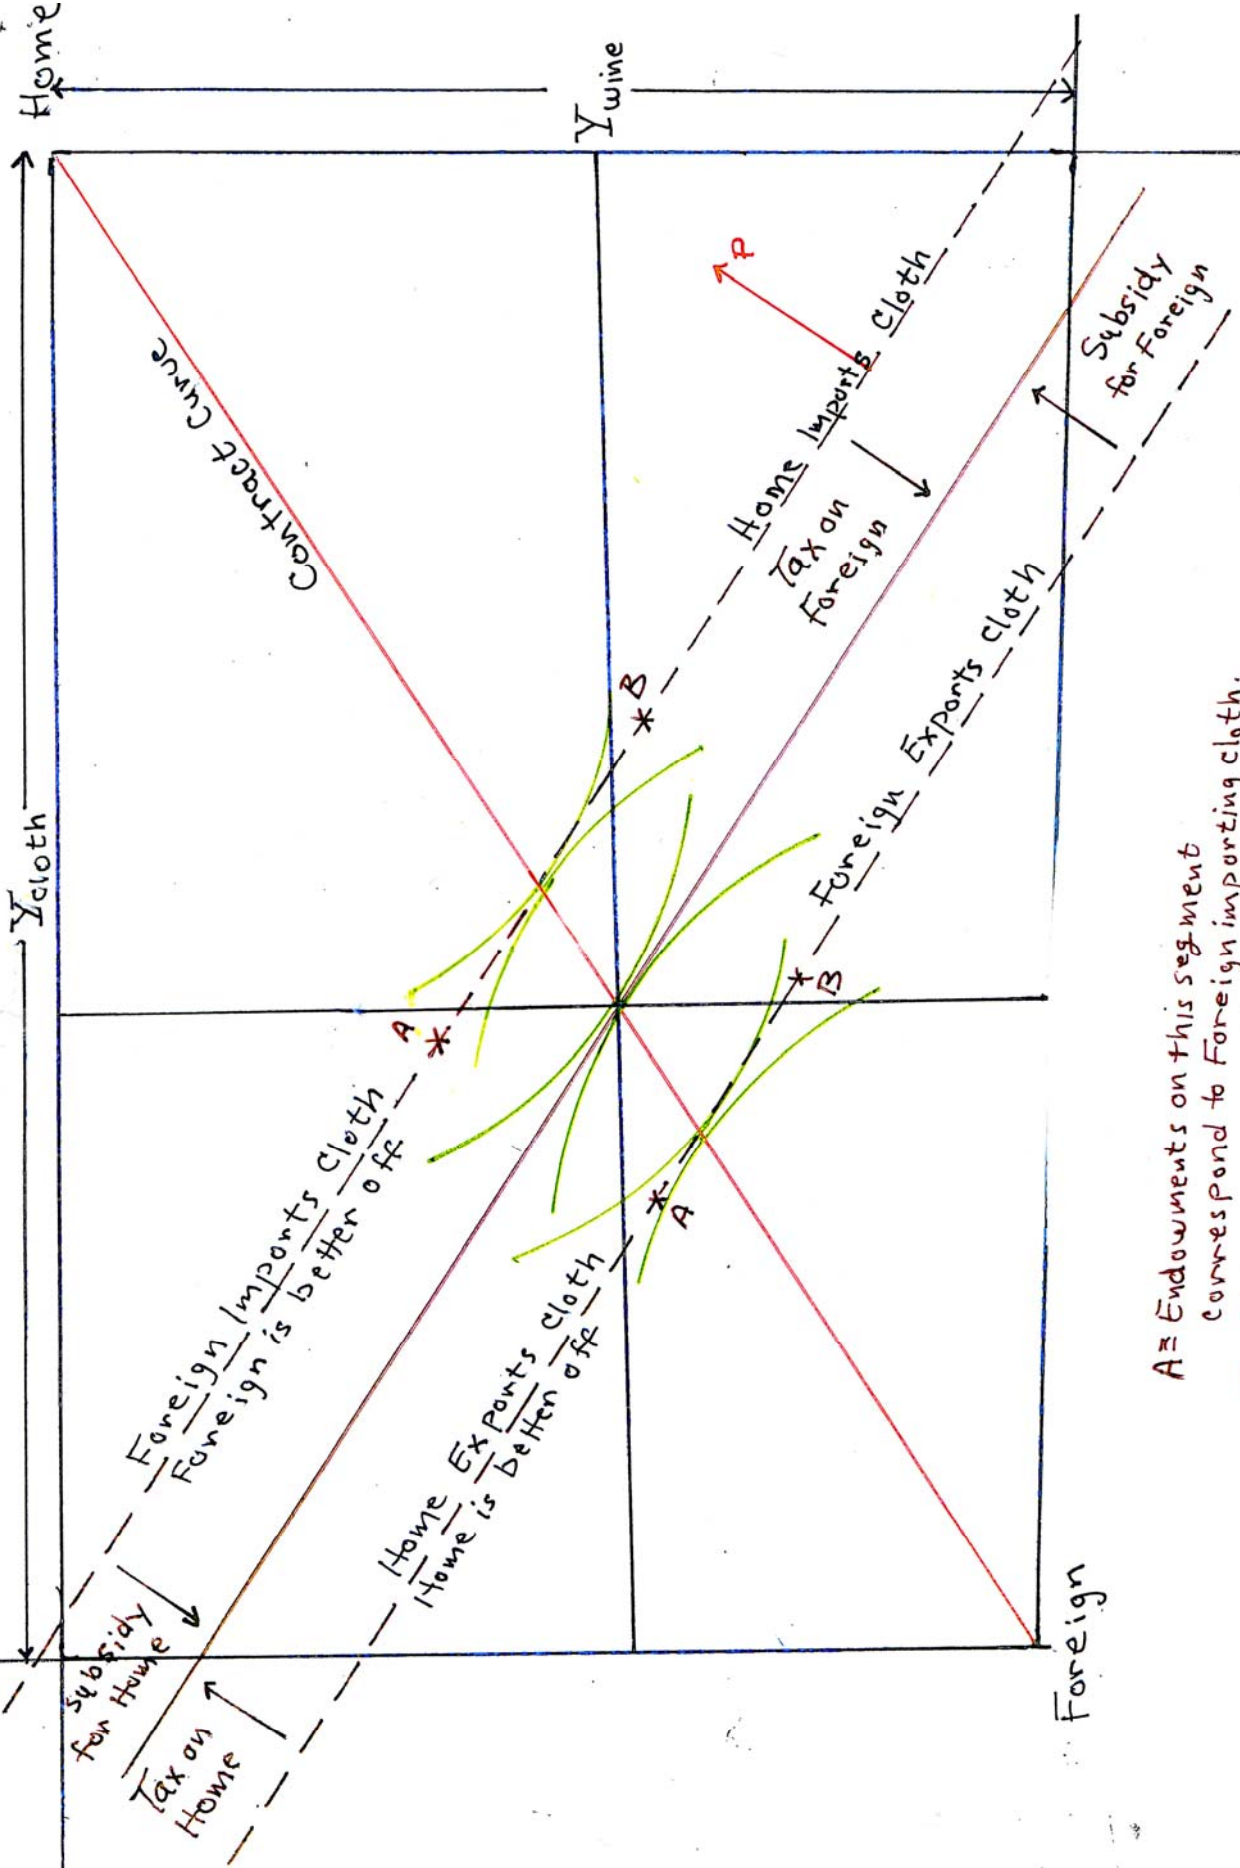 Home
Ywine
Ycloth
Contract Curve
P
Home Imports Cloth
Tax on
Foreign
Subsidy
for Foreign
Foreign Exports Cloth
B
A
B
A
Foreign Imports Cloth
Foreign is better off
Home Exports Cloth
Home is better off
Subsidy
for Home
Tax on
Home
Foreign
A ≡ Endowments on this segment
correspond to Foreign importing cloth.